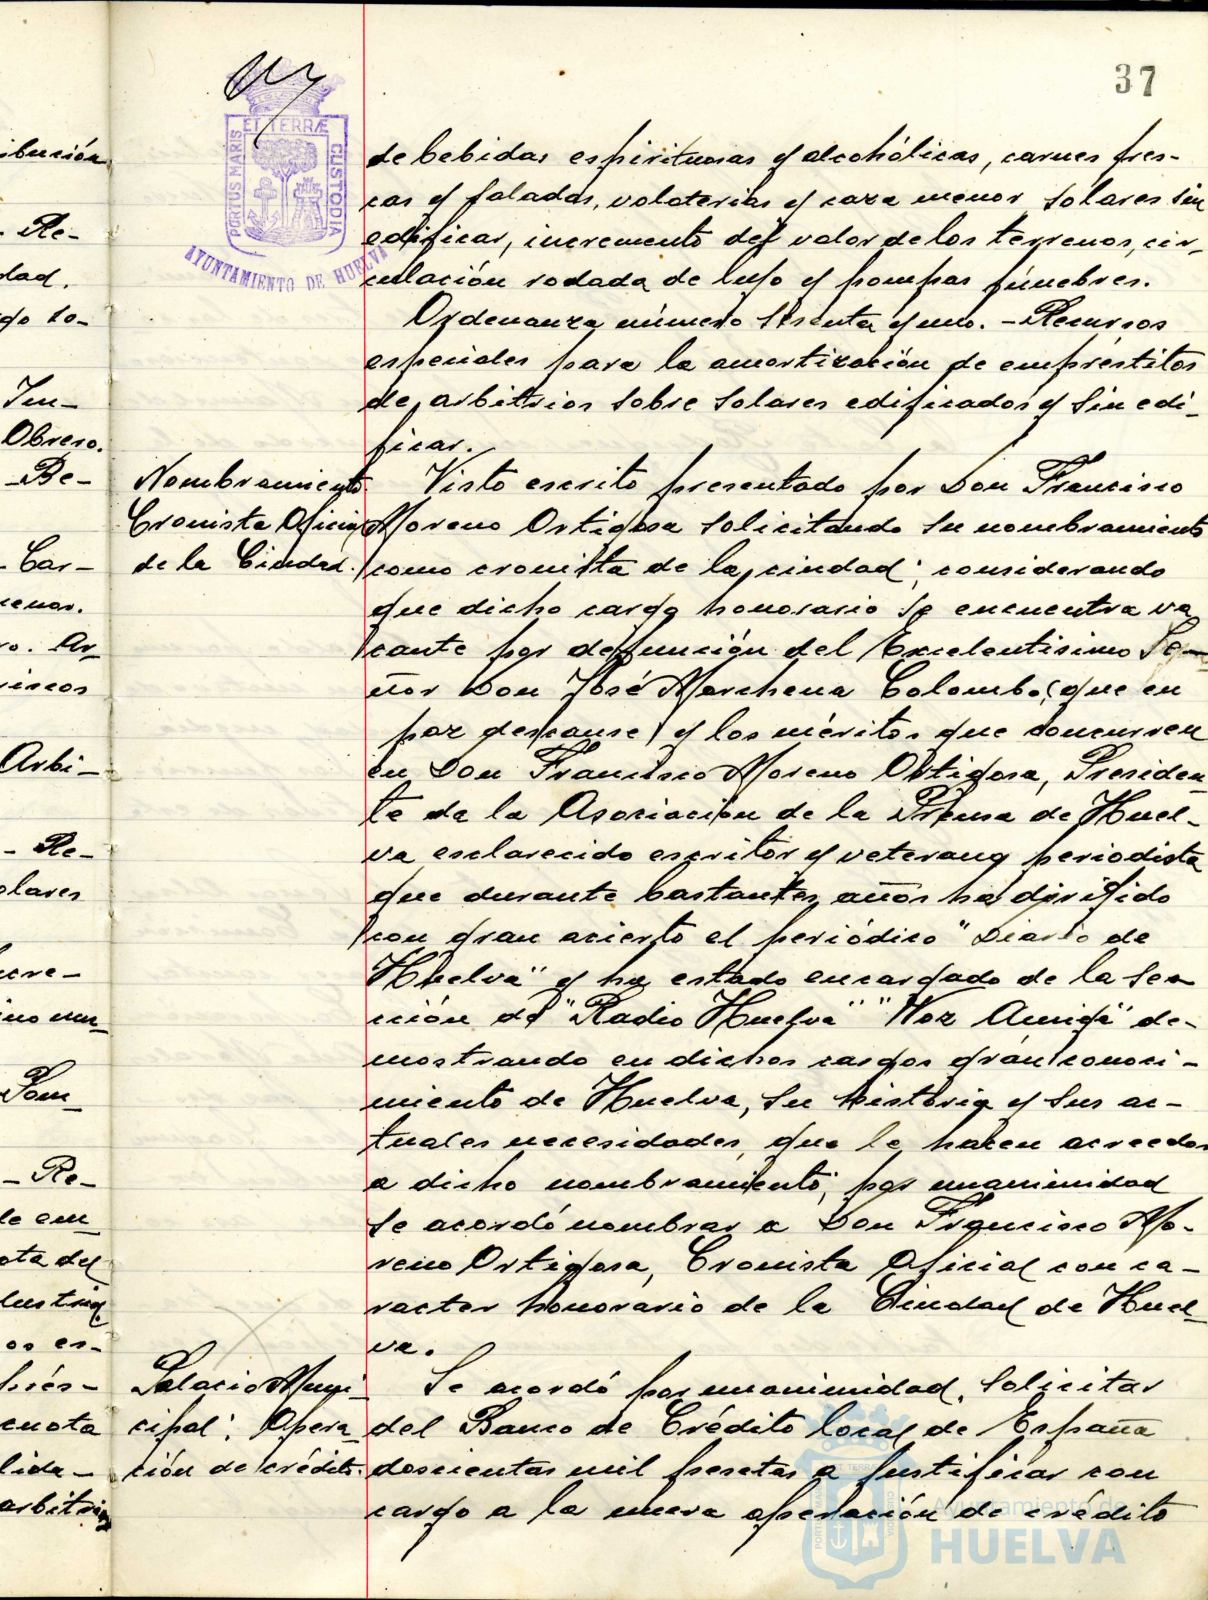 37
PORTUS MARIS ET TERRÆ CUSTODIA
AYUNTAMIENTO DE HUELVA
de bebidas espirituosas y alcohólicas, carnes fres-
cas y saladas, volaterias y caza menor solares sin
edificar, incremento del valor de los terrenos, cir-
culación rodada de lujo y pompas fúnebres.
Ordenanza número sesenta y uno. - Recursos
especiales para la amortización de empréstitos
de arbitrios sobre solares edificados y sin edi-
ficar.
Nombramiento
Cronista Oficial
de la Ciudad.
Visto escrito presentado por Don Francisco
Moreno Ortigosa solicitando su nombramiento
como cronista de la ciudad; considerando
que dicho cargo honorario se encuentra va
cante por defunción del Excelentisimo Se-
ñor Don José Marchena Colombo (que en
paz descanse) y los méritos que concurren
en Don Francisco Moreno Ortigosa, Presiden
te de la Asociación de la Prensa de Huel-
va esclarecido escritor y veterano periodista
que durante bastantes años ha dirigido
con gran acierto el periódico "Diario de
Huelva" y ha estado encargado de la sec
ción de "Radio Huelva" "Voz Amiga" de-
mostrando en dichos cargos gran conoci-
miento de Huelva, su historia y sus ac-
tuales necesidades, que le hacen acreedor
a dicho nombramiento; por unanimidad
se acordó nombrar a Don Francisco Mo-
reno Ortigosa, Cronista Oficial con ca-
racter honorario de la Ciudad de Huel-
va.
Palacio Muni
cipal: Opera
ción de crédito.
Se acordó por unanimidad, solicitar
del Banco de Crédito local de España
doscientas mil pesetas a justificar con
cargo a la nueva operación de crédito
ibución
- Re-
dad.
go so-
Im-
Obrero.
- Be-
- Car-
menor.
ro. Ar
riscos
Arbi-
- Re-
olares
cre-
Pom
- Re-
de em
ota del
os es-
prés-
cuota
lida-
arbitrios
Ayuntamiento de
HUELVA